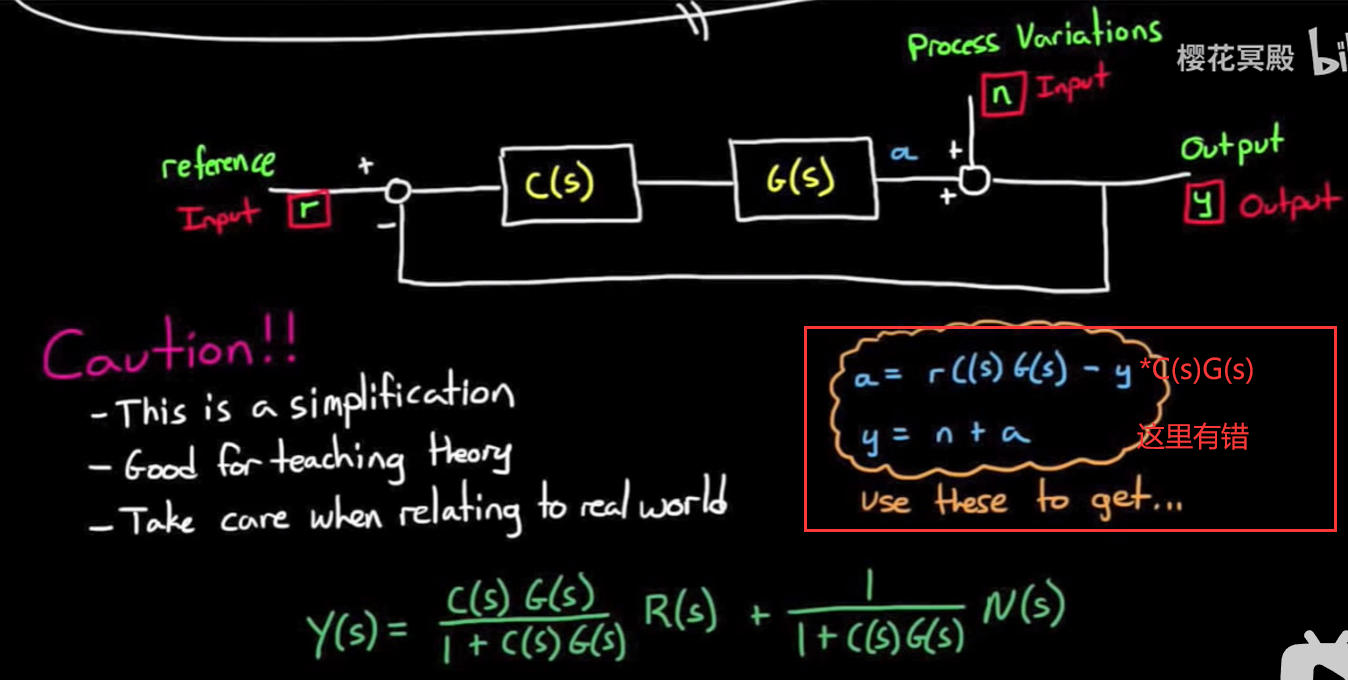 Process Variations
樱花冥殿
n Input
reference
+
C(s)
G(s)
a
+
Output
Input r
-
+
y Output
Caution!!
- This is a simplification
- Good for teaching theory
- Take care when relating to real world
a = r C(s) G(s) - y *C(s)G(s)
y = n + a 这里有错
use these to get...
Y(s) = C(s) G(s) / 1 + C(s) G(s) R(s) + 1 / 1 + C(s) G(s) N(s)